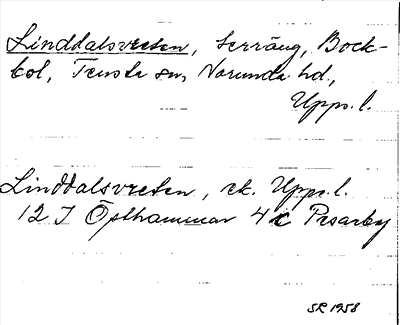 Linddalsvreten, terräng, Bock-
bol, Tensta sn, Norunda hd.,
Upps. l.
Linddalsvreten, ek. Upps. l.
12 I Östhammar 4c Pesarby
SR 1958